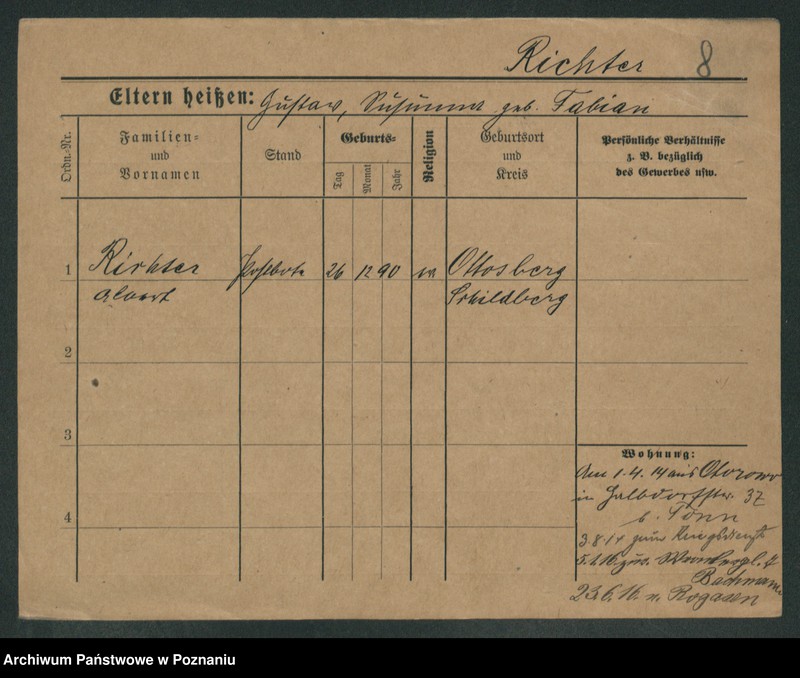 Richter 8
Eltern heißen: Gustav, Susanna geb. Fabian
Ordn.-Nr.
Familien-
und
Vornamen
Stand
Geburts-
Tag
Monat
Jahr
Religion
Geburtsort
und
Kreis
Persönliche Verhältnisse
z. B. bezüglich
des Gewerbes usw.
1 Richter Postbote 26 12 90 ev Ottosberg
Albert Schildberg
2
3
4
Wohnung:
Am 1.4.14 aus Otorowo
in Halbdorfstr. 37
b. Tonn
3 8 14 zum Kriegsdienst
5.1.16 zur.
Bachmann
23.6.16 n. Rogasen
Archiwum Państwowe w Poznaniu